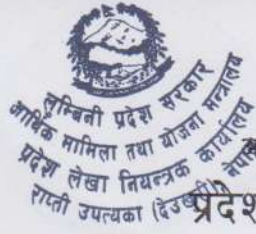 लुम्बिनी प्रदेश सरकार
आर्थिक मामिला तथा योजना मन्त्रालय
प्रदेश लेखा नियन्त्रक कार्यालय
राप्ती उपत्यका (देउखुरी) नेपाल
प्रदेश